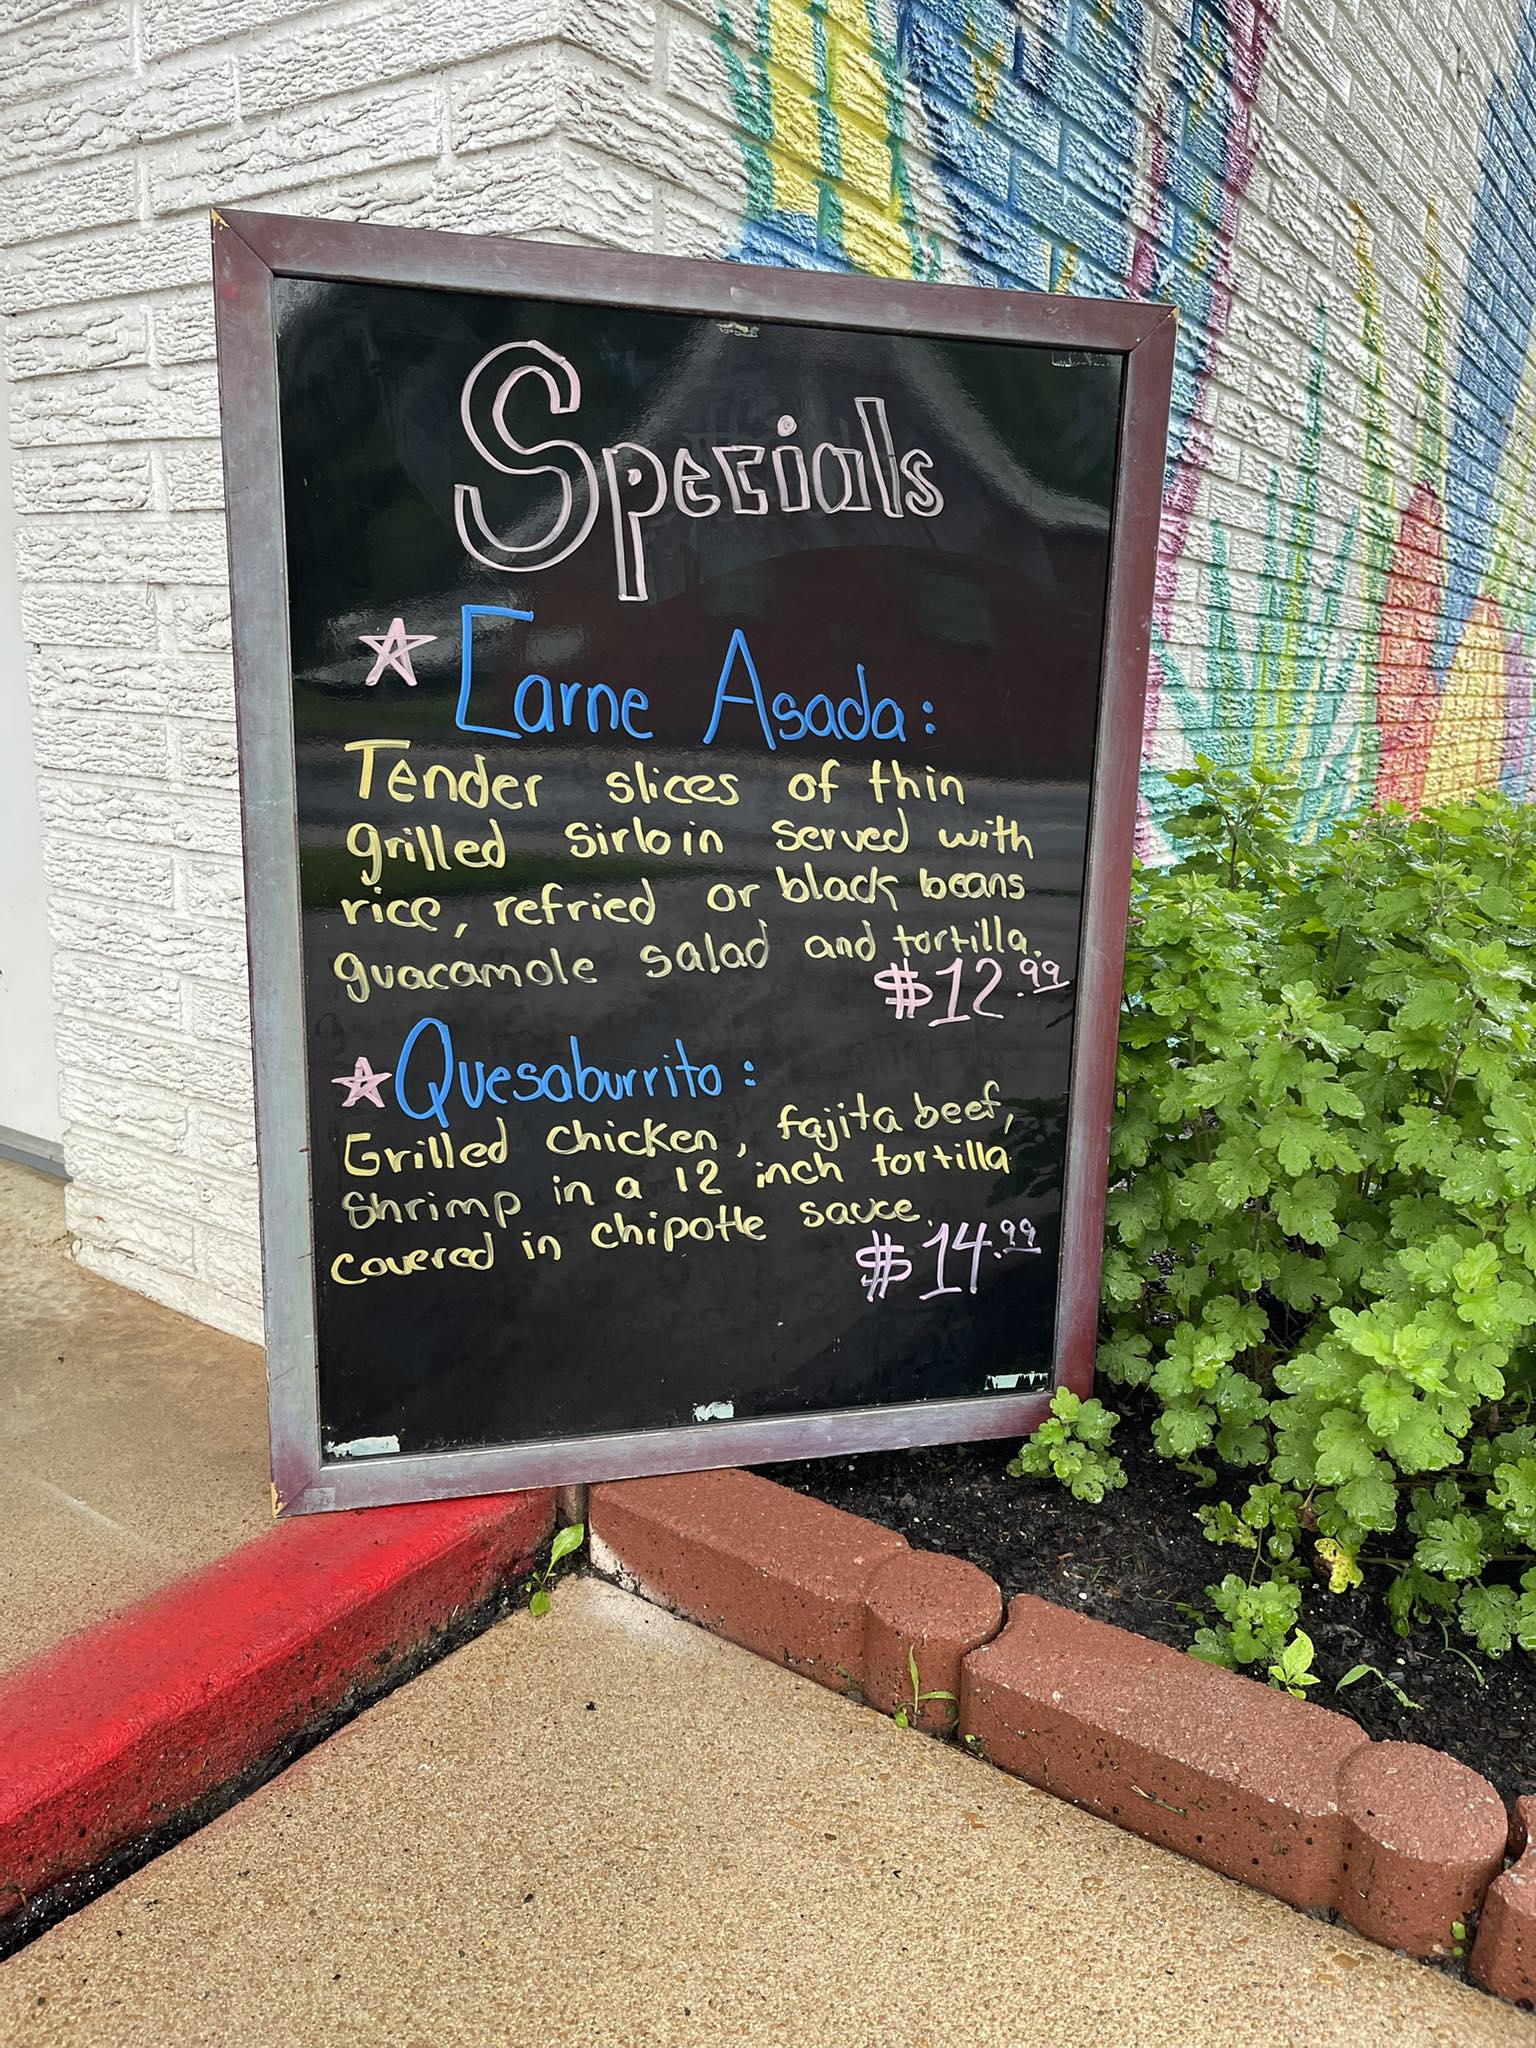 Specials
Carne Asada:
Tender slices of thin
grilled sirloin served with
rice, refried or black beans
guacamole salad and tortilla.
$12.99
Quesaburrito:
Grilled chicken, fajita beef,
Shrimp in a 12 inch tortilla
covered in chipotle sauce.
$14.99